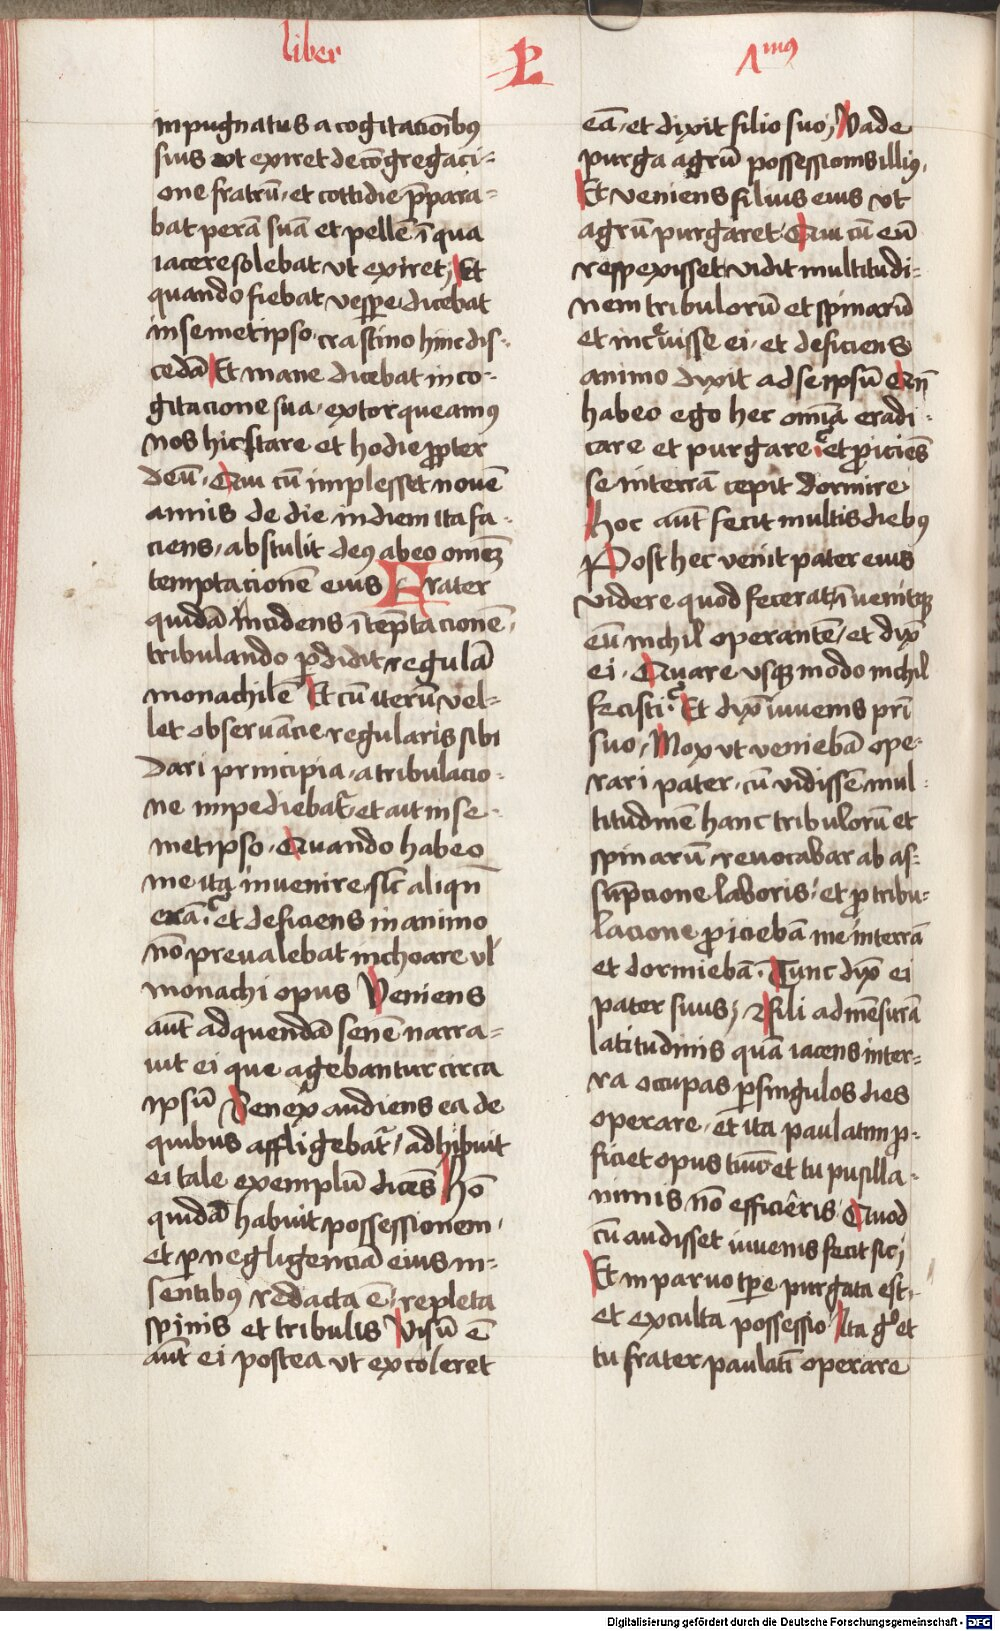 liber
P
1mꝰ
inpugnatus a cogitacōibꝰ
suis vt exiret de cōgregaci-
one fratrū, et cottidie p̄para-
bat perā suā et pellē ī qua
iacere solebat vt exiret; Et
quando fiebat vesꝑe dicebat
in semetipso, crastino hinc dis-
cedā Et mane dicebat in co-
gitacione sua, extorqueamꝰ
nos hic stare et hodie ꝓpter
deū, Qui cū implesset nouē
annis de die in diem ita fa-
ciens, abstulit deꝰ ab eo omēꝫ
temptacionē eius Frater
quidā incidens ī tēptacionē,
tribulando ꝑdidit regulā
monachilē Et cū iterū vel-
let obseruācie regularis sibi
dari principia, a tribulacio-
ne impediebat᷑, et ait in se-
metipso, Quando habeo
me ita inuenire, sic̄ aliqn̄
erā, et deficiens in animo
nō preualebat inchoare vl'
monachi opus Veniens
aūt ad quendā senē narra-
uit ei que agebantur circa
ipsū Senex audiens ea de
quibus affligebat᷑, adhibuit
ei tale exemplū dicēs Hō
quidā habuit possessionem,
et ꝑ negligenciā eius in
sentibꝰ redacta ē, repleta
spinis et tribulis Visū ē
aūt ei postea vt excoleret
eā, et dixit filio suo; Vade
purga agrū possessionis illiꝰ,
Et veniens filius eius vt
agrū purgaret Qui cū eū
respexisset vidit multitudi-
nem tribulorū et spinarū
et incͬuisse ei, et deficiens
animo dixit ad se ipsū Qn̄
habeo ego hec om̄ia eradi-
care et purgare, et ꝓiciēs
se in terrā cepit dormire
Hoc aūt fecit multis diebꝰ
Post hec venit pater eius
videre quod fecerat, īuenitqꝫ
eū nichil operantē, et dix̄
ei, Quare vsqꝫ modo nichil
fecisti, Et dix̄ iuuenis pr̄i
suo, Mox vt veniebā ope-
rari pater, cū vidissē mul-
titudinē hanc tribulorū et
spinarū, reuocabar ab as-
sūpcione laboris, et ꝑ tribu-
lacione ꝓiciebā me in terrā
et dormiebā, Tunc dix̄ ei
pater suus; Fili ad mēsurā
latitudinis quā iacens inter-
ra occupas ꝑ singulos dies
operare, et ita paulatim ꝓ-
ficiet opus tuū et tu pusilla-
nimis nō efficieris Quod
cū audisset iuuenis fecit sic;
Et in paruo tꝑe purgata est,
et exculta possessio Ita gͦ et
tu frater paulatī operare
Digitalisierung gefördert durch die Deutsche Forschungsgemeinschaft - DFG